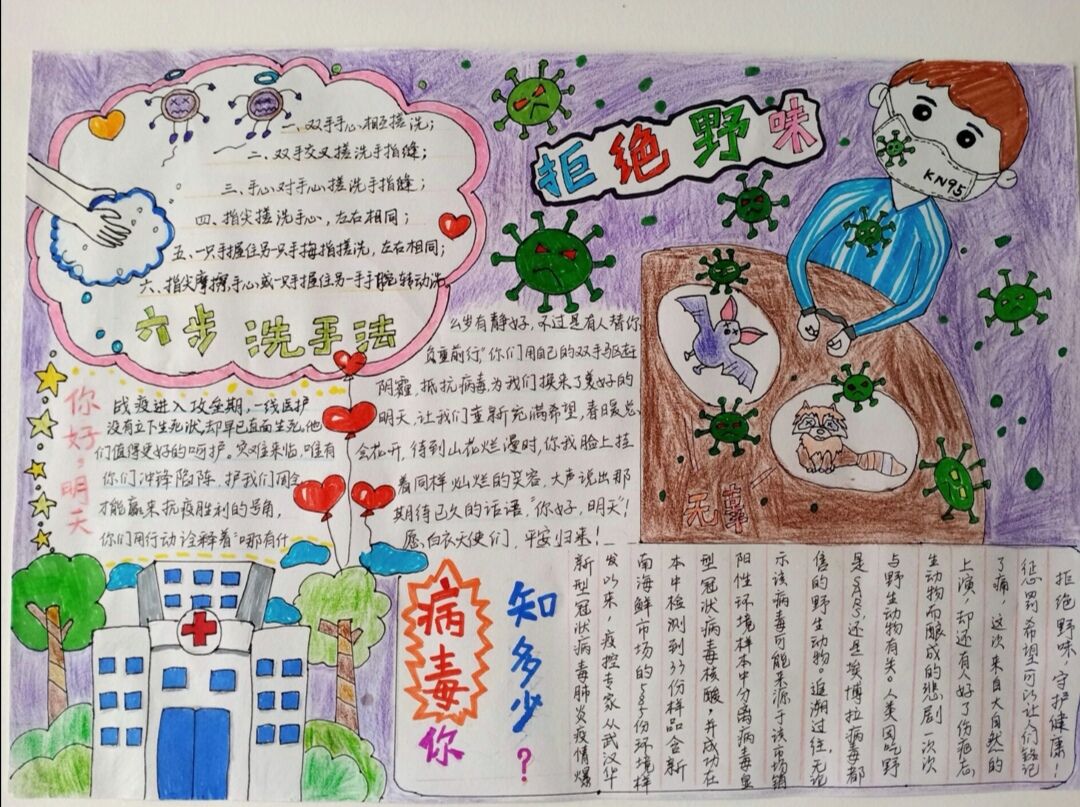 一、双手手心相互搓洗；
二、双手交叉搓洗手指缝；
三、手心对手心搓洗手指缝；
四、指尖搓洗手心，左右相同；
五、一只手握住另一只手拇指搓洗，左右相同；
六、指尖摩擦手心或一只手握住另一手手腕转动洗。
六步洗手法
拒绝野味
KN95
无毒
你好，明天
战疫进入攻坚期，一线医护
没有立下生死状，却早已直面生死，他
们值得更好的呵护。灾难来临，唯有
你们冲锋陷阵，护我们周全
才能赢来抗疫胜利的号角，
你们用行动诠释着“哪有什
么岁有静好，不过是有人替你
负重前行”你们用自己的双手驱赶
阴霾，抵抗病毒为我们换来了美好的
明天，让我们重新充满希望，春暖总
会花开，待到山花烂漫时，你我脸上挂
着同样灿烂的笑容，大声说出那
期待已久的话语，“你好，明天”！
愿，白衣天使们，平安归来！
病毒你
知多少？
新型冠状病毒肺炎疫情爆
发以来，疫控专家从武汉华
南海鲜市场的585份环境样
本中检测到33份样品含新
型冠状病毒核酸，并成功在
阳性环境样本中分离病毒显
示该病毒可能来源于该市场销
售的野生动物。追溯过往，无论
是SARS还是埃博拉病毒都
与野生动物有关。人类因吃野
生动物而酿成的悲剧一次次
上演，却还有人好了伤疤忘
了痛，这次来自大自然的
惩罚希望可以让人们铭记
拒绝野味，守护健康！